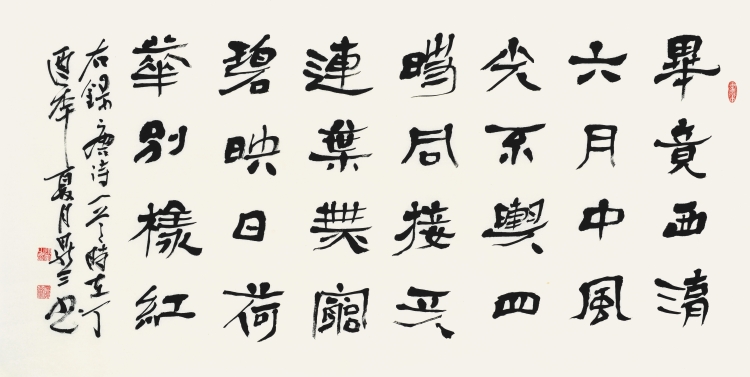 畢竟西湖
六月中風
光不與四
時同接天
連葉無窮
碧映日荷
華別樣紅
右錄唐诗一首時在丁
酉年夏月